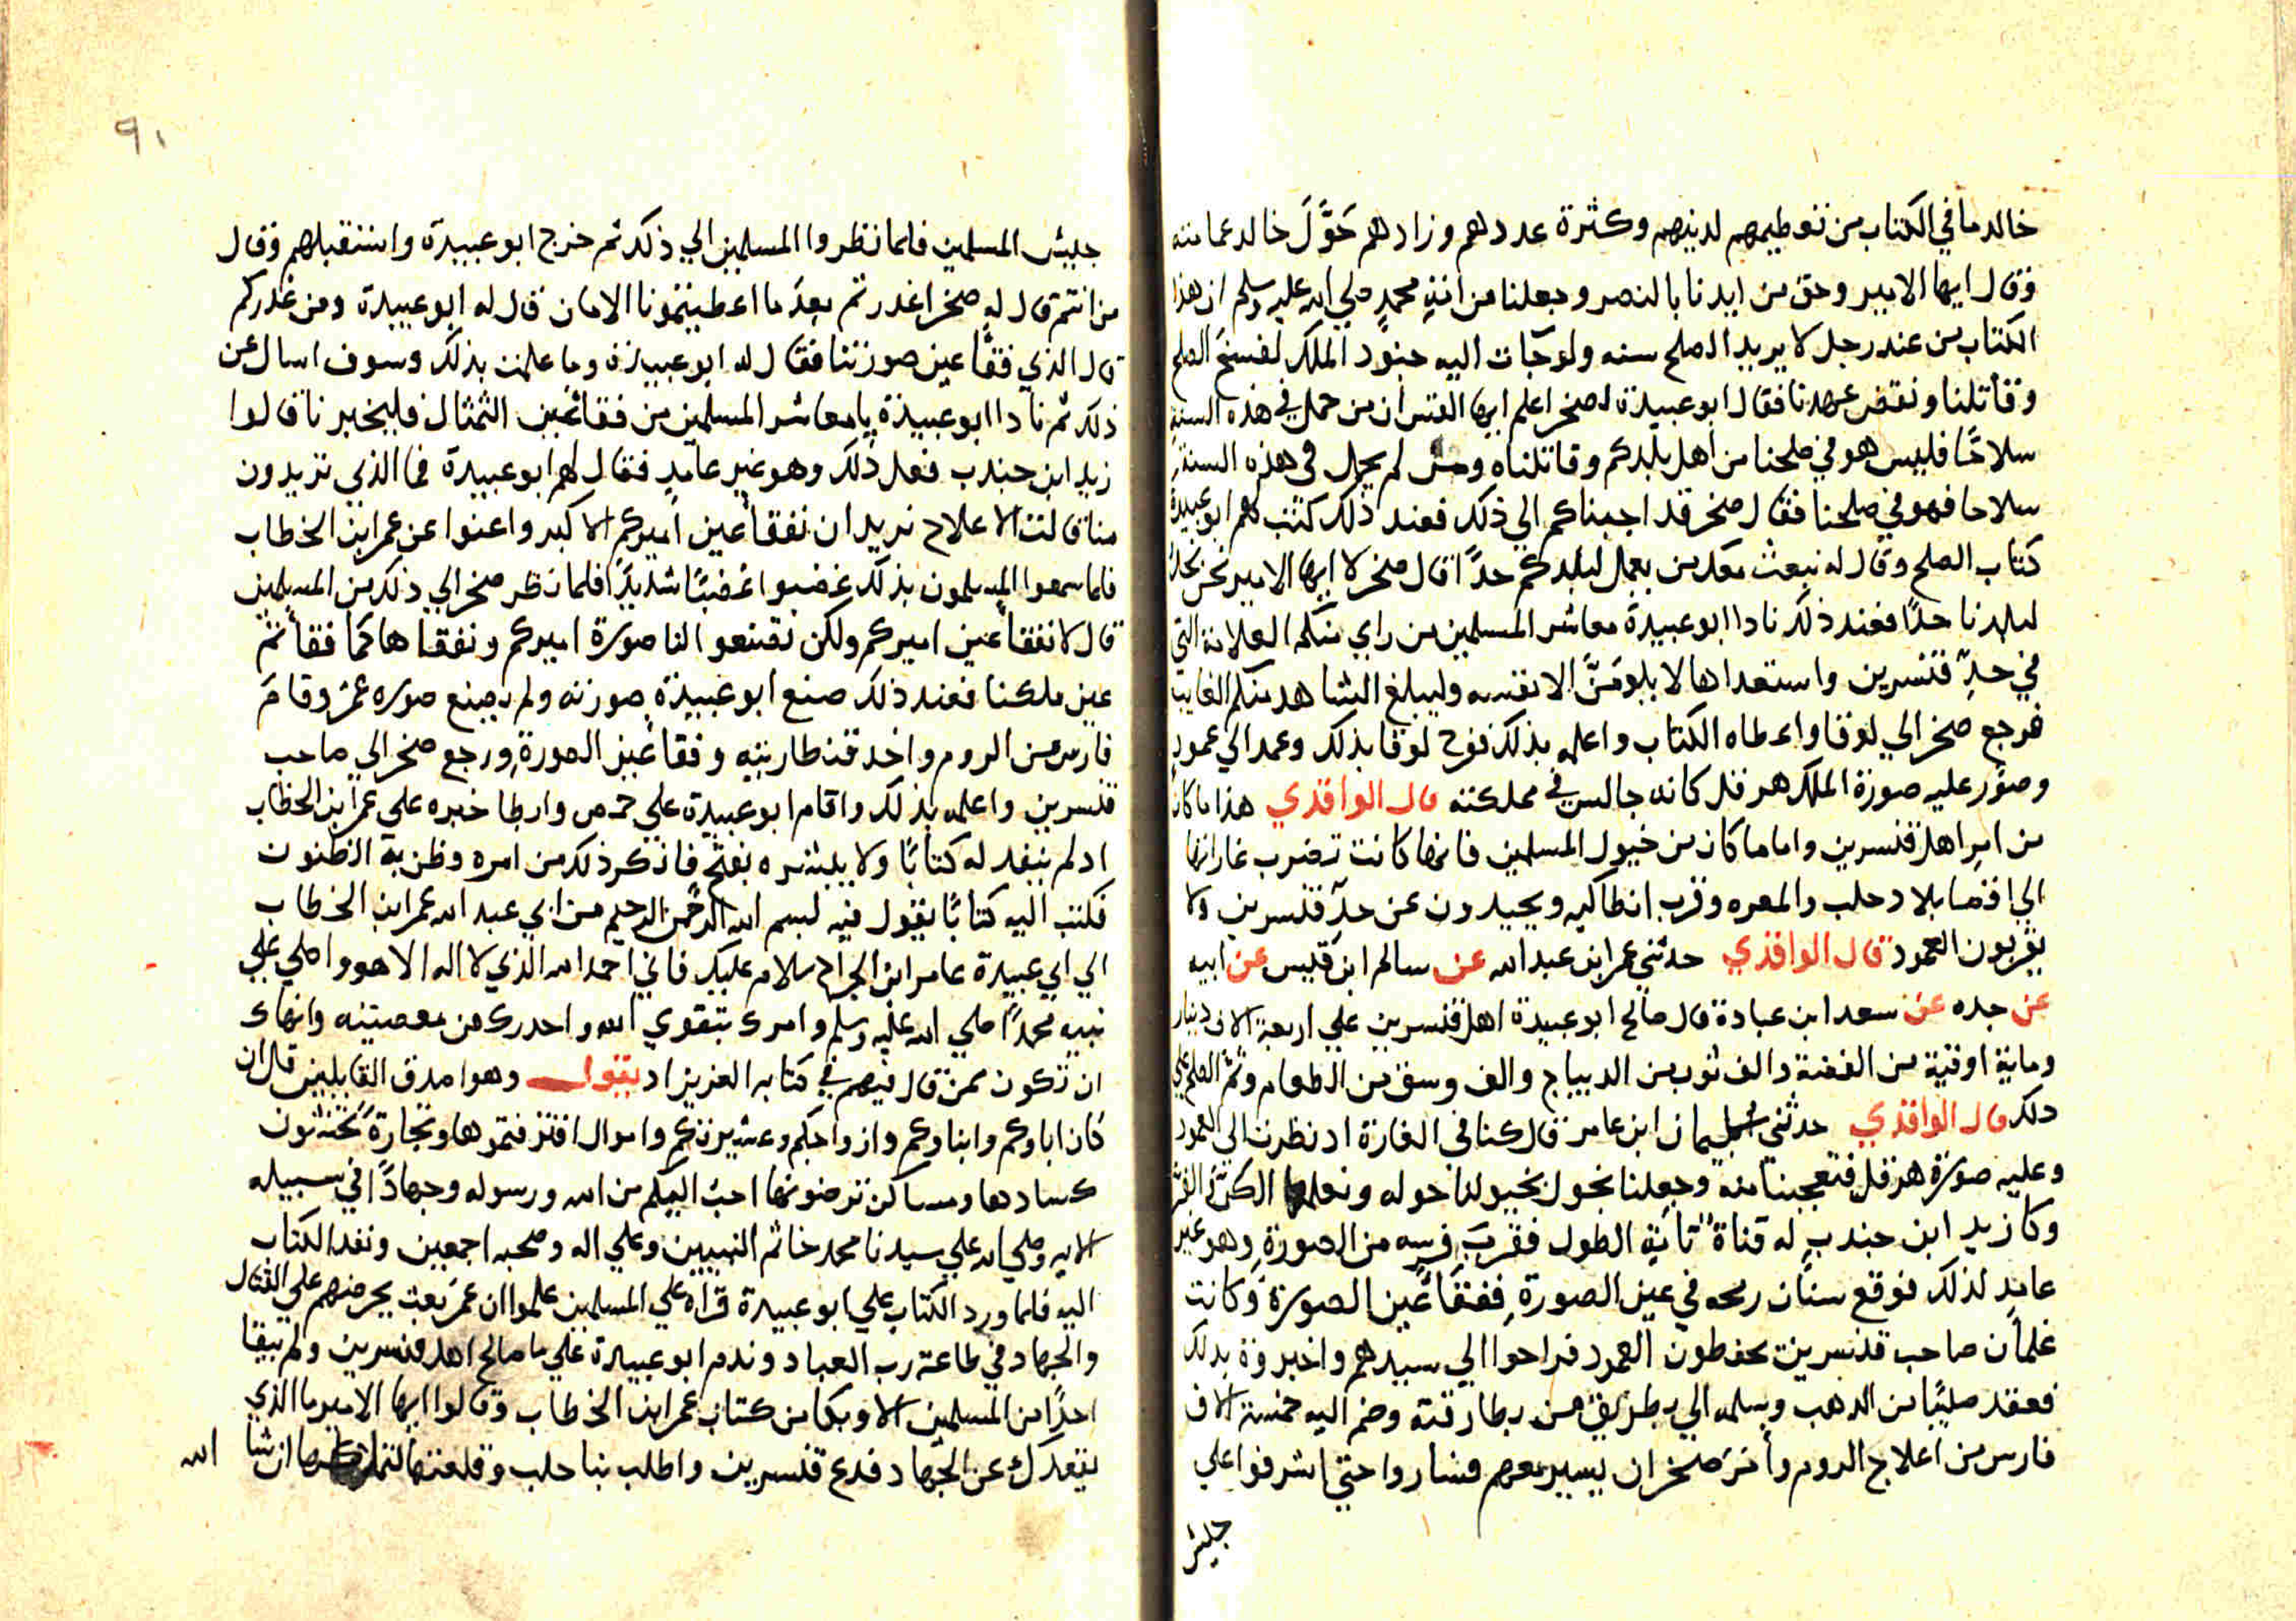 خالد ما في الكتاب من تعظيمهم لدينهم وكثرة عددهم وزادهم حَوَّلَ خالد عمامته
وقال ايها الامير وحق من ايدنا بالنصر وجعلنا من امةِ محمدٍ صلي الله عليه وسلم ان هذا
الكتاب من عند رجل لا يريد الصلح سنه ولو جات اليه جنود الملك لفسخ الصلح
وقاتلنا ونقض عهدنا فقال ابو عبيدة لصخر اعلم ايها القس ان من حمل في هذه السنة
سلاحًا فليس هو في صلحنا من اهل بلدكم وقاتلناه ومن لم يحمل في هذه السنة
سلاحا فهو في صلحنا فقال صخر قد اجبناكم الي ذلك فعند ذلك كتب لهم ابو عبيدة
كتاب الصلح وقال له نبعث معك من يعمل لبلدكم حدًا قال صخر لا ايها الامير نحن نجعل
لبلدنا حدًا فعند ذلك نادا ابو عبيدة معاشر المسلمين من راي منكم العلامة التي
في حدّ قنسرين واستعداها لا يلومَنَّ الا نفسه وليبلغ الشاهد منكم الغايب
فرجع صخر الي لوقا واعطاه الكتاب واعلمه بذلك ففرح لوقا بذلك وعمد الي عمود
وصور عليه صورة الملك هرقل كانه جالس في مملكته قال الواقدي هذا ما كان
من امر اهل قنسرين واما ما كان من خيول المسلمين فانها كانت تضرب غاراتها
الي اقصا بلاد حلب والمعره وقرب انطاكيه ويحيدون عن حدّ قنسرين ولا
يقربون العمود قال الواقدي حدثني عمر ابن عبد الله عن سالم ابن قيس عن ابيه
عن جده عن سعد ابن عبادة قال صالح ابو عبيدة اهل قنسرين علي اربعة الاف دينار
وماية اوقية من الفضة والف ثوب من الديباج والف وسق من الطعام وتم الصلح علي
ذلك قال الواقدي حدثني سليمان ابن عامر قال كنا في الغارة اذ نظرت الي العمود
وعليه صورة هرقل فتعجبنا منه وجعلنا نجول بخيولنا حوله ونعلمها الكر
وكا زيد ابن جندب له قناة تامة الطول فقرب فرسه من الصورة وهو غير
عامدٍ لذلك فوقع سنان رمحه في عين الصورة ففقا عين الصورة وكانت
غلمان صاحب قنسرين يحفظون العمود فراحوا الي سيدهم واخبروه بذلك
فعقد صليبًا من الذهب وسلمه الي بطريق من بطارقته وضم اليه خمسة الاف
فارس من اعلاج الروم وامر صخر ان يسير معهم فساروا حتي اشرفوا علي
جليش
٩١
جليش المسلمين فلما نظروا المسلمين الي ذلك ثم خرج ابو عبيدة واستقبلهم وقال
من انتم قال له صخر اغدرتم بعد ما اعطيتمونا الامان قال له ابو عبيدة ومن غدركم
قال الذي فقا عين صورتنا فقال له ابو عبيدة وما علمت بذلك وسوف اسال عن
ذلك ثم نادا ابو عبيدة يا معاشر المسلمين من فقا عين التمثال فليخبرنا قالوا
زيد ابن جندب فعل ذلك وهو غير عامدٍ فقال لهم ابو عبيدة فما الذي تريدون
منا قالت الاعلاج نريد ان نفقا عين اميركم الاكبر واعنوا عن عمر ابن الخطاب
فلما سمعوا المسلمون بذلك غضبوا غضبًا شديدًا فلما نظر صخر الي ذلك من المسلمين
قال لا نفقا عين اميركم ولكن تصنعوا لنا صورة اميركم ونفقاها كما فقاتم
عين ملكنا فعند ذلك صنع ابو عبيدة صورته ولم يصنع صوره عمر وقام
فارس من الروم واخد قنطاريته وفقا عين الصورة ورجع صخر الي صاحب
قنسرين واعلمه بذلك واقام ابو عبيدة علي حمص وابطا خبره علي عمر ابن الخطاب
اد لم ينفد له كتابًا ولا يبشره بفتح فاذكر ذلك من امره وظن به الظنون
فكتب اليه كتابًا يقول فيه بسم الله الرحمن الرحيم من ابي عبد الله عمر ابن الخطاب
الي ابي عبيدة عامر ابن الجراح سلام عليك فاني احمد الله الذي لا اله الا هو واصلي علي
نبيه محمدًا صلي الله عليه وسلم وامرك بتقوي الله واحدرك من معصيته وانهاك
ان تكون ممن قال فيهم في كتابه العزيز اد يقول وهو اصدق القايلين قل ان
كان اباوكم وابناوكم وازواجكم وعشيرتكم واموال اقترفتموها وتجارة تخشون
كسادها ومساكن ترضونها احب اليكم من الله ورسوله وجهادًا في سبيله
الايه وصلي الله علي سيدنا محمد خاتم النبيين وعلي اله وصحبه اجمعين ونفد الكتاب
اليه فلما ورد الكتاب علي ابو عبيدة قراه علي المسلمين علموا ان عمر بعت يحرضهم علي القتال
والجهاد في طاعة رب العباد وندم ابو عبيدة علي ما صالح اهل قنسرين ولم يبقا
احدًا من المسلمين الا وبكا من كتاب عمر ابن الخطاب وقالوا ايها الامير ما الذي
يقعدك عن الجهاد فدع قنسرين واطلب بنا حلب وقلعتها ان شا الله